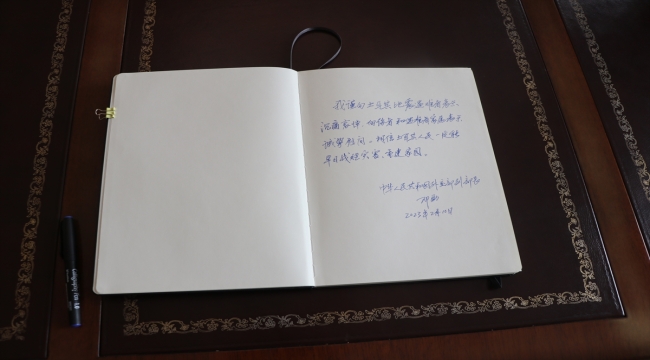 我谨向土耳其地震遇难者表示
沉痛哀悼,向伤者和遇难者家属表示
诚挚慰问。相信土耳其人民一定能
早日战胜灾害、重建家园。
中华人民共和国外交部副部长
2023年2月10日